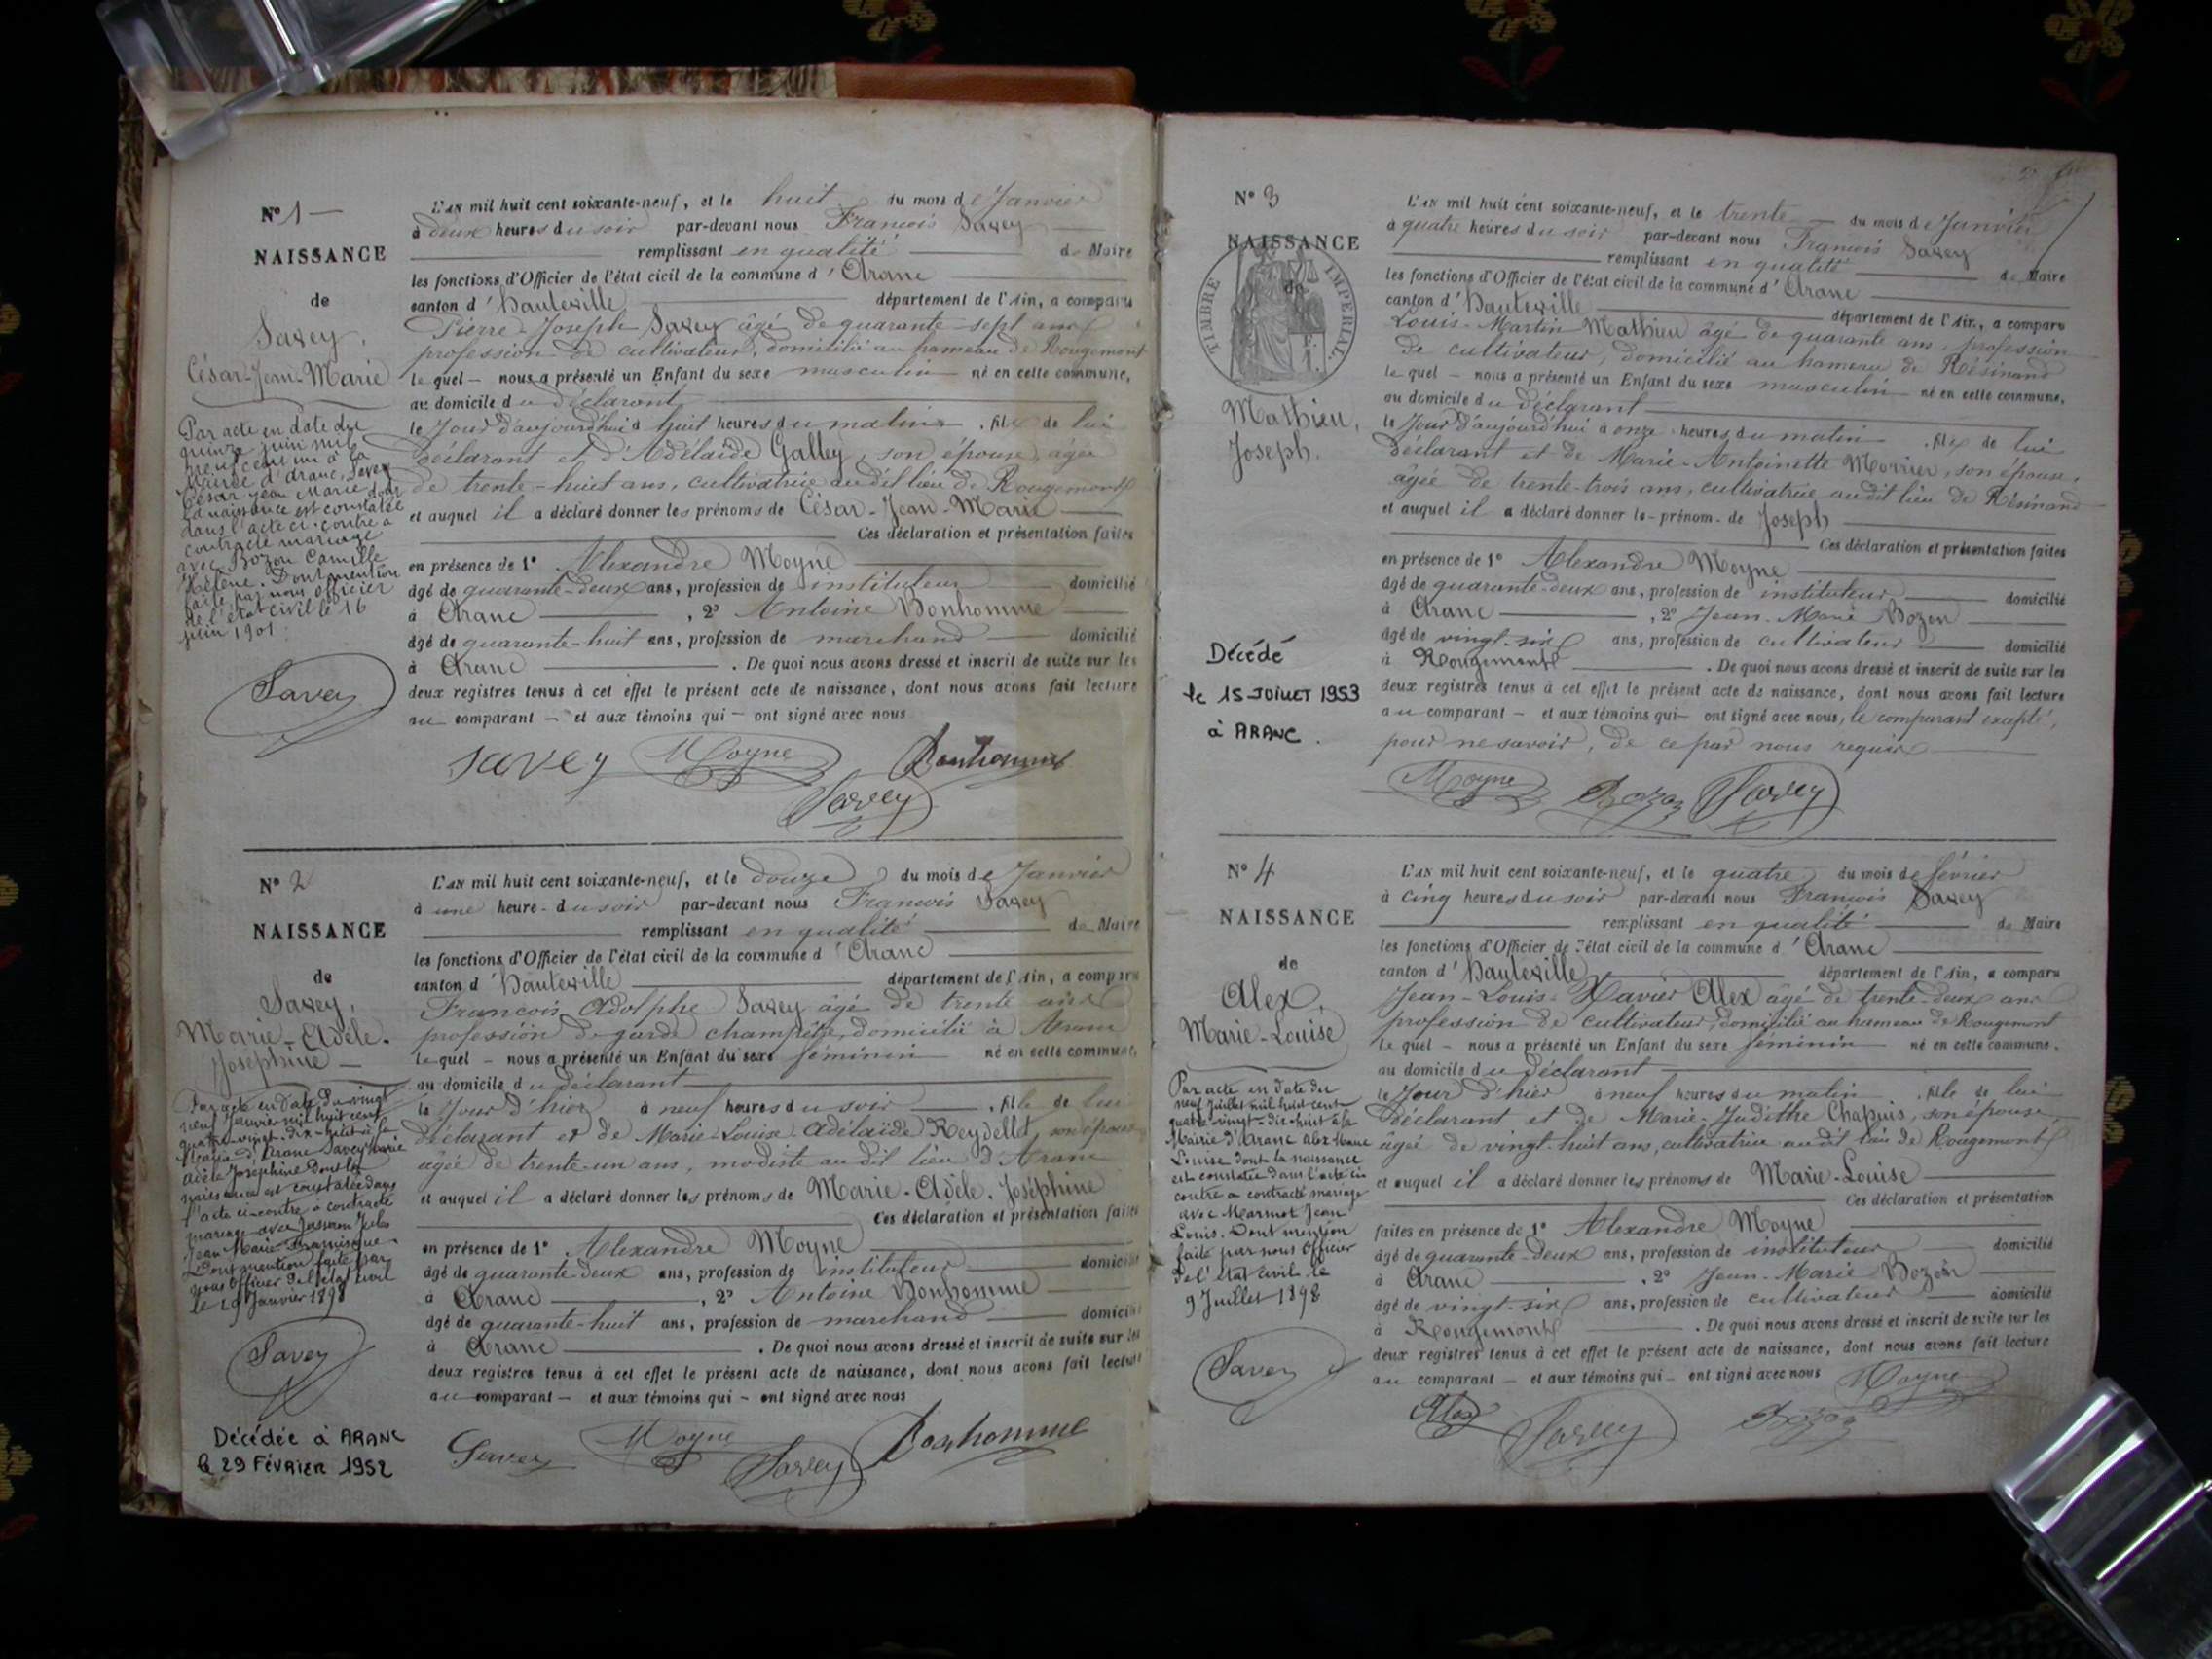 N° 1
NAISSANCE
de
Savey,
César-Jean-Marie
Par acte en date du
quinze juin mil
neuf cent un à la
Mairie d'Aranc, Savey
César Jean Marie dont
la naissance est constatée
dans l'acte ci-contre a
contracté mariage
avec Bozon Camille
Hélène. Dont mention
faite par nous officier
de l'état civil le 16
juin 1901.
Savey
L'AN mil huit cent soixante-neuf, et le huit du mois de Janvier
à deux heures du soir par-devant nous François Savey
remplissant en qualité de Maire
les fonctions d'Officier de l'état civil de la commune d'Aranc
canton d'Hauteville département de l'Ain, a comparu
Pierre-Joseph Savey âgé de quarante-sept ans
profession de cultivateur, domicilié au hameau de Rougemont
lequel nous a présenté un Enfant du sexe masculin né en cette commune,
au domicile du déclarant
le Jour d'aujourd'hui à huit heures du matin, fils de lui
déclarant et d'Adélaïde Galley, son épouse, âgée
de trente-huit ans, cultivatrice audit lieu de Rougemont
et auquel il a déclaré donner les prénoms de César-Jean-Marie
Ces déclaration et présentation faites
en présence de 1° Alexandre Moyne
âgé de quarante-deux ans, profession de instituteur domicilié
à Aranc, 2° Antoine Bonhomme
âgé de quarante-huit ans, profession de marchand domicilié
à Aranc. De quoi nous avons dressé et inscrit de suite sur les
deux registres tenus à cet effet le présent acte de naissance, dont nous avons fait lecture
au comparant et aux témoins qui ont signé avec nous
Savey Moyne Bonhomme
Savey
N° 2
NAISSANCE
de
Savey,
Marie-Adèle-
Joséphine
Par acte en date du vingt
neuf Janvier mil huit cent
quatre-vingt-dix-huit à la
Mairie d'Aranc Savey Marie
Adèle Joséphine dont la
naissance est constatée dans
l'acte ci-contre a contracté
mariage avec Jules
Jean Marie
Dont mention faite par
nous Officier de l'état civil
le 29 Janvier 1898
Savey
Décédée à ARANC
le 29 FÉVRIER 1952
L'AN mil huit cent soixante-neuf, et le douze du mois de Janvier
à une heure du soir par-devant nous François Savey
remplissant en qualité de Maire
les fonctions d'Officier de l'état civil de la commune d'Aranc
canton d'Hauteville département de l'Ain, a comparu
François Adolphe Savey âgé de trente ans
profession de garde champêtre, domicilié à Aranc
lequel nous a présenté un Enfant du sexe féminin né en cette commune,
au domicile du déclarant
le Jour d'hier à neuf heures du soir, fille de lui
déclarant et de Marie-Louise-Adélaïde Reydellet, son épouse
âgée de trente-un ans, modiste au dit lieu d'Aranc
et auquel il a déclaré donner les prénoms de Marie-Adèle-Joséphine
Ces déclaration et présentation faites
en présence de 1° Alexandre Moyne
âgé de quarante-deux ans, profession de instituteur domicilié
à Aranc, 2° Antoine Bonhomme
âgé de quarante-huit ans, profession de marchand domicilié
à Aranc. De quoi nous avons dressé et inscrit de suite sur les
deux registres tenus à cet effet le présent acte de naissance, dont nous avons fait lecture
au comparant et aux témoins qui ont signé avec nous
Savey Moyne Savey Bonhomme
N° 3
NAISSANCE
de
TIMBRE IMPÉRIAL.
Mathieu,
Joseph.
Décédé
le 15 JUILLET 1953
à ARANC.
L'AN mil huit cent soixante-neuf, et le trente du mois de Janvier
à quatre heures du soir par-devant nous François Savey
remplissant en qualité de Maire
les fonctions d'Officier de l'état civil de la commune d'Aranc
canton d'Hauteville département de l'Ain, a comparu
Louis-Martin Mathieu âgé de quarante ans, profession
de cultivateur, domicilié au hameau de Résinand
lequel nous a présenté un Enfant du sexe masculin né en cette commune,
au domicile du déclarant
le Jour d'aujourd'hui à onze heures du matin, fils de lui
déclarant et de Marie-Antoinette Morrier, son épouse,
âgée de trente-trois ans, cultivatrice audit lieu de Résinand
et auquel il a déclaré donner le prénom de Joseph
Ces déclaration et présentation faites
en présence de 1° Alexandre Moyne
âgé de quarante-deux ans, profession de instituteur domicilié
à Aranc, 2° Jean-Marie Bozon
âgé de vingt-six ans, profession de cultivateur domicilié
à Rougemont. De quoi nous avons dressé et inscrit de suite sur les
deux registres tenus à cet effet le présent acte de naissance, dont nous avons fait lecture
au comparant et aux témoins qui ont signé avec nous, le comparant excepté,
pour ne savoir, de ce par nous requis
Moyne Bozon Savey
N° 4
NAISSANCE
de
Alex,
Marie-Louise
Par acte en date du
neuf Juillet mil huit cent
quatre-vingt-dix-huit à la
Mairie d'Aranc Alex Marie
Louise dont la naissance
est constatée dans l'acte ci
contre a contracté mariage
avec Marmet Jean
Louis. Dont mention
faite par nous Officier
de l'état civil le
9 Juillet 1898
Savey
L'AN mil huit cent soixante-neuf, et le quatre du mois de février
à cinq heures du soir par-devant nous François Savey
remplissant en qualité de Maire
les fonctions d'Officier de l'état civil de la commune d'Aranc
canton d'Hauteville département de l'Ain, a comparu
Jean-Louis-Xavier Alex âgé de trente-deux ans
profession de cultivateur, domicilié au hameau de Rougemont
lequel nous a présenté un Enfant du sexe féminin né en cette commune,
au domicile du déclarant
le Jour d'hier à neuf heures du matin, fille de lui
déclarant et de Marie-Judithe Chapuis, son épouse
âgée de vingt-huit ans, cultivatrice audit lieu de Rougemont
et auquel il a déclaré donner les prénoms de Marie-Louise
Ces déclaration et présentation
faites en présence de 1° Alexandre Moyne
âgé de quarante-deux ans, profession de instituteur domicilié
à Aranc, 2° Jean-Marie Bozon
âgé de vingt-six ans, profession de cultivateur domicilié
à Rougemont. De quoi nous avons dressé et inscrit de suite sur les
deux registres tenus à cet effet le présent acte de naissance, dont nous avons fait lecture
au comparant et aux témoins qui ont signé avec nous Moyne
Alex Savey Bozon